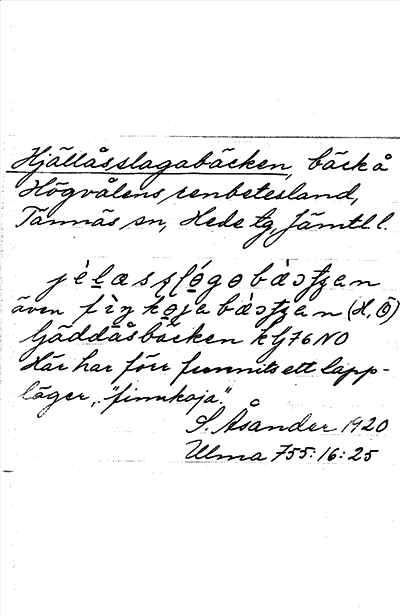 Hjällåsslagabäcken, bäck å
Högvålens renbetesland,
Tännäs sn, Hede tg, Jämtl l.
även (H, Ö)
Gäddåsbäcken kG76NO
Här har förr funnits ett lapp-
läger, "finnkoja".
S. Åsander 1920
Ulma 755:16:25